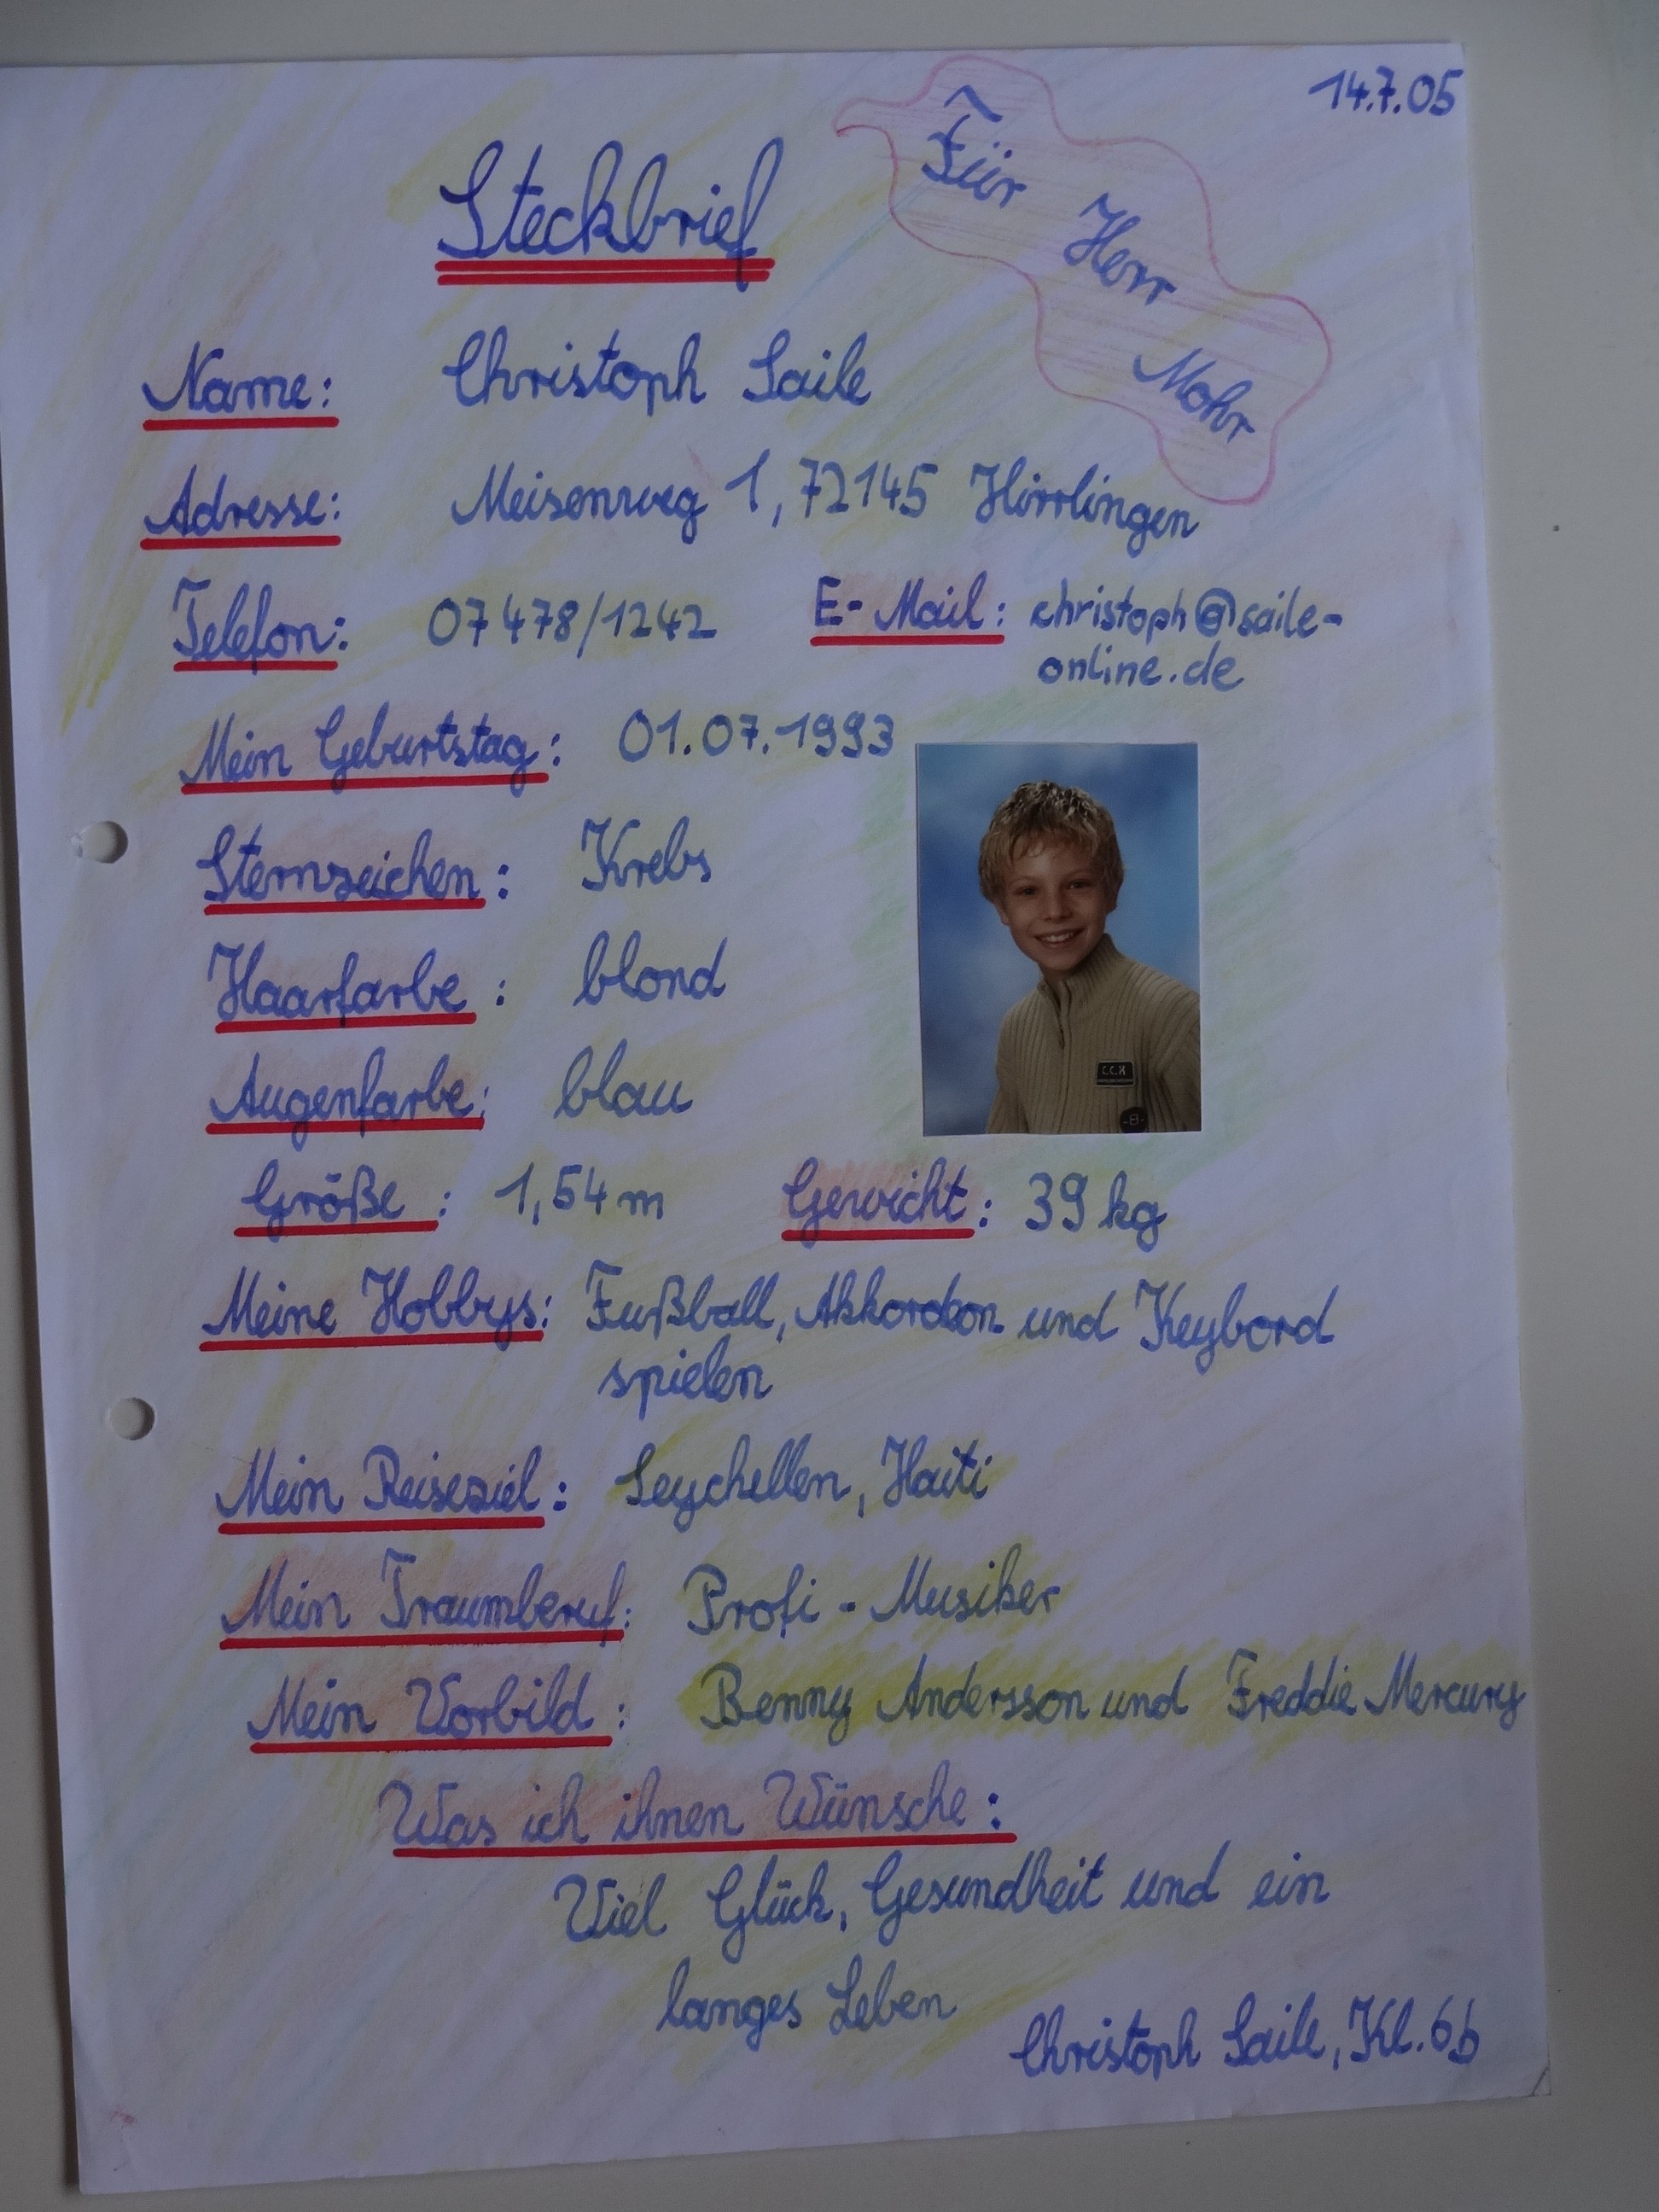 14.7.05
Für
Herr
Mohr
Steckbrief
Name: Christoph Saile
Adresse: Meisenweg 1, 72145 Hirrlingen
Telefon: 07478/1242 E-Mail: christoph@saile-
online.de
Mein Geburtstag: 01.07.1993
Sternzeichen: Krebs
Haarfarbe: blond
Augenfarbe: blau
C.C.X
-B-
Größe: 1,54 m Gewicht: 39 kg
Meine Hobbys: Fußball, Akkordeon und Keybord
spielen
Mein Reiseziel: Seychellen, Haiti
Mein Traumberuf: Profi-Musiker
Mein Vorbild: Benny Andersson und Freddie Mercury
Was ich ihnen Wünsche:
Viel Glück, Gesundheit und ein
langes Leben
Christoph Saile, Kl. 6b